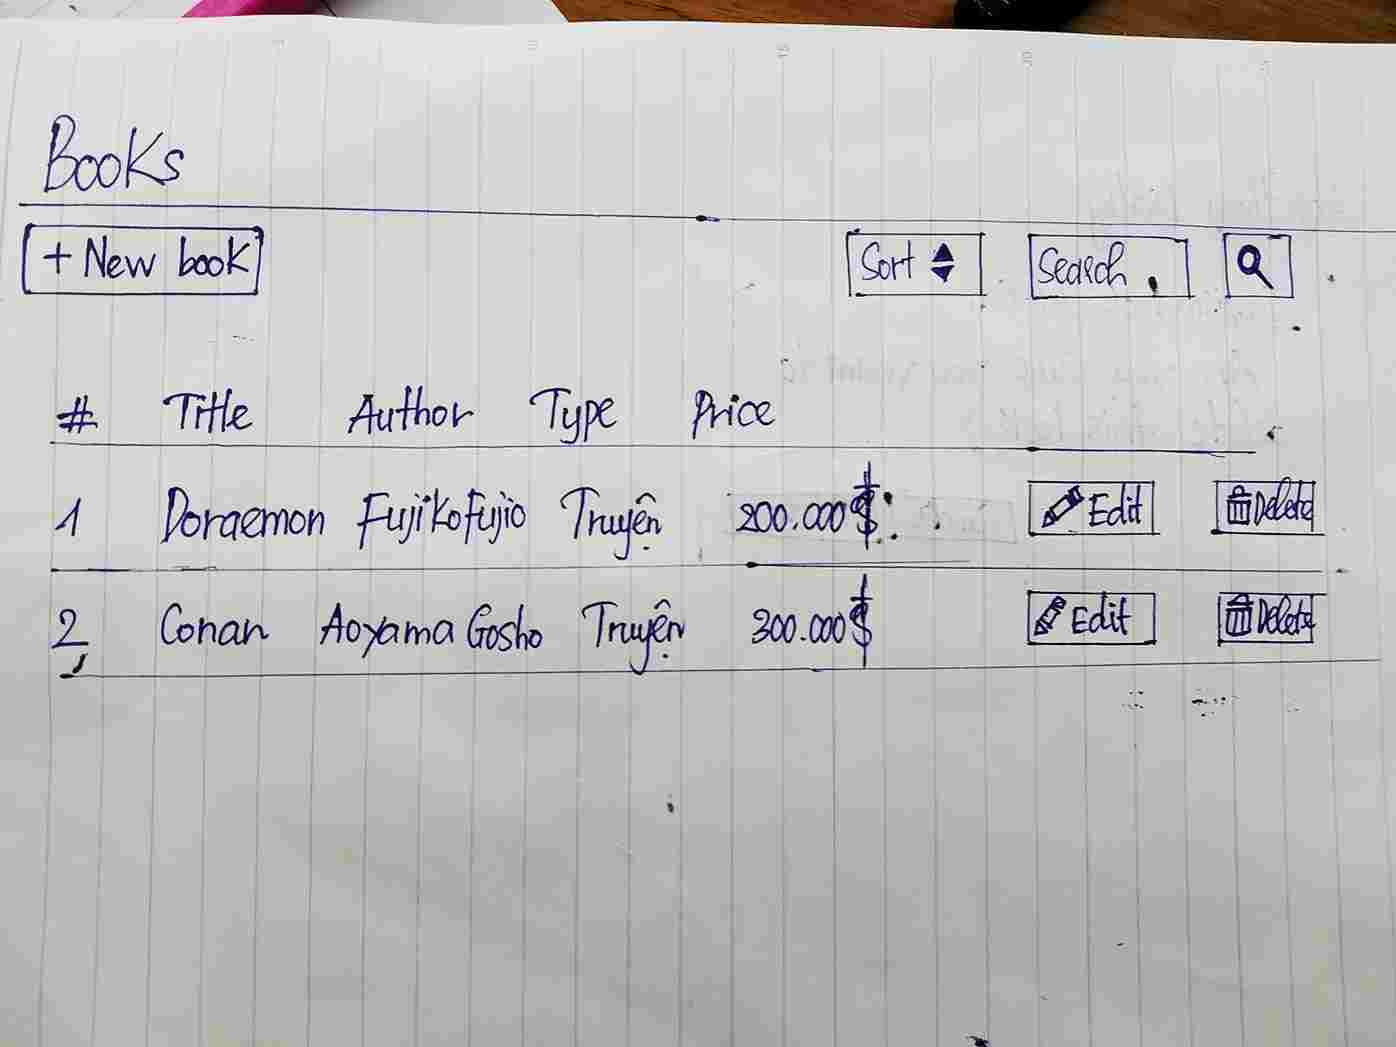 Books
+ New book Sort Search
# Title Author Type Price
1 Doraemon FujikoFujio Truyện 200.000$ Edit Delete
2 Conan Aoyama Gosho Truyện 300.000$ Edit Delete